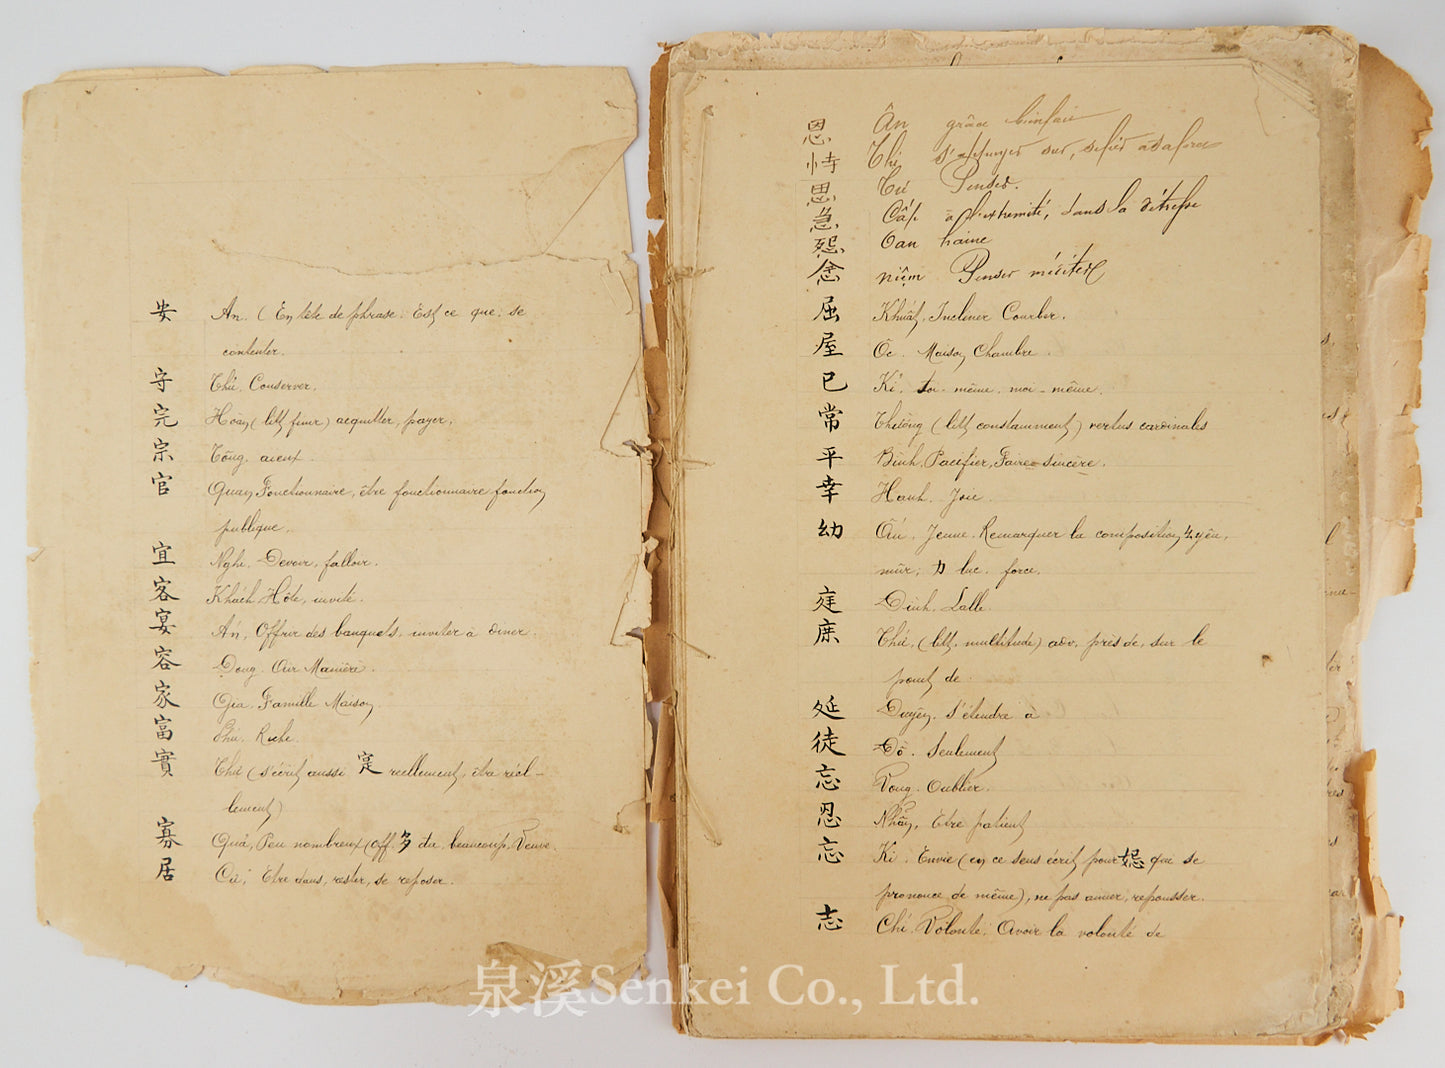 安 An. (En tête de phrase. Est ce que, se
contenter.
守 Thủ. Conserver.
完 Hoàn (litt finir) acquitter, payer.
宗 Tông. aieux.
官 Quan, Fonctionnaire, être fonctionnaire fonction
publique.
宜 Nghi. Devoir, falloir.
客 Khách. Hôte, invité.
宴 Án, Offrir des banquets, inviter à diner.
容 Dong. Air Manière.
家 Gia. Famille Maison
富 Phú. Riche.
實 Thât (s'écrit aussi 寔 reellement, être réel-
lement)
寡 Quả, Peu nombreux (opp. 多 đa, beaucoup. Veuve.
居 Cư, Etre dans, rester, se reposer.
恩 Ân grâce bienfait
恃 Thi s'appuyer sur, se fier à sa force
思 Tư Penser.
急 Cấp à l'extremité, dans la détresse
怨 Oan haine
念 niệm Penser méditer
屈 Khuât, Incliner Courber.
屋 Ốc. Maison Chambre.
已 Kỉ. toi-même, moi-même.
常 Thường (litt constamment) vertus cardinales
平 Bình, Pacifier, Faire sincère.
幸 Hanh. Joie.
幼 Âú. Jeune. Remarquer la composition 幺 yêu,
mûr, 力 luc. force.
庭 Đình. Salle.
庶 Thú, (litt. multitude) adv. près de, sur le
point de.
延 Duyên. s'étendre à
徒 Đồ. Seulement
忘 Vong. Oublier.
忍 Nhẫn, Etre patient
忘 Kị. Envie (en ce sens écrit pour 妃 que se
prononce de même), ne pas aimer, repousser.
志 Chí. Volonté. Avoir la volonté de
泉溪Senkei Co., Ltd.